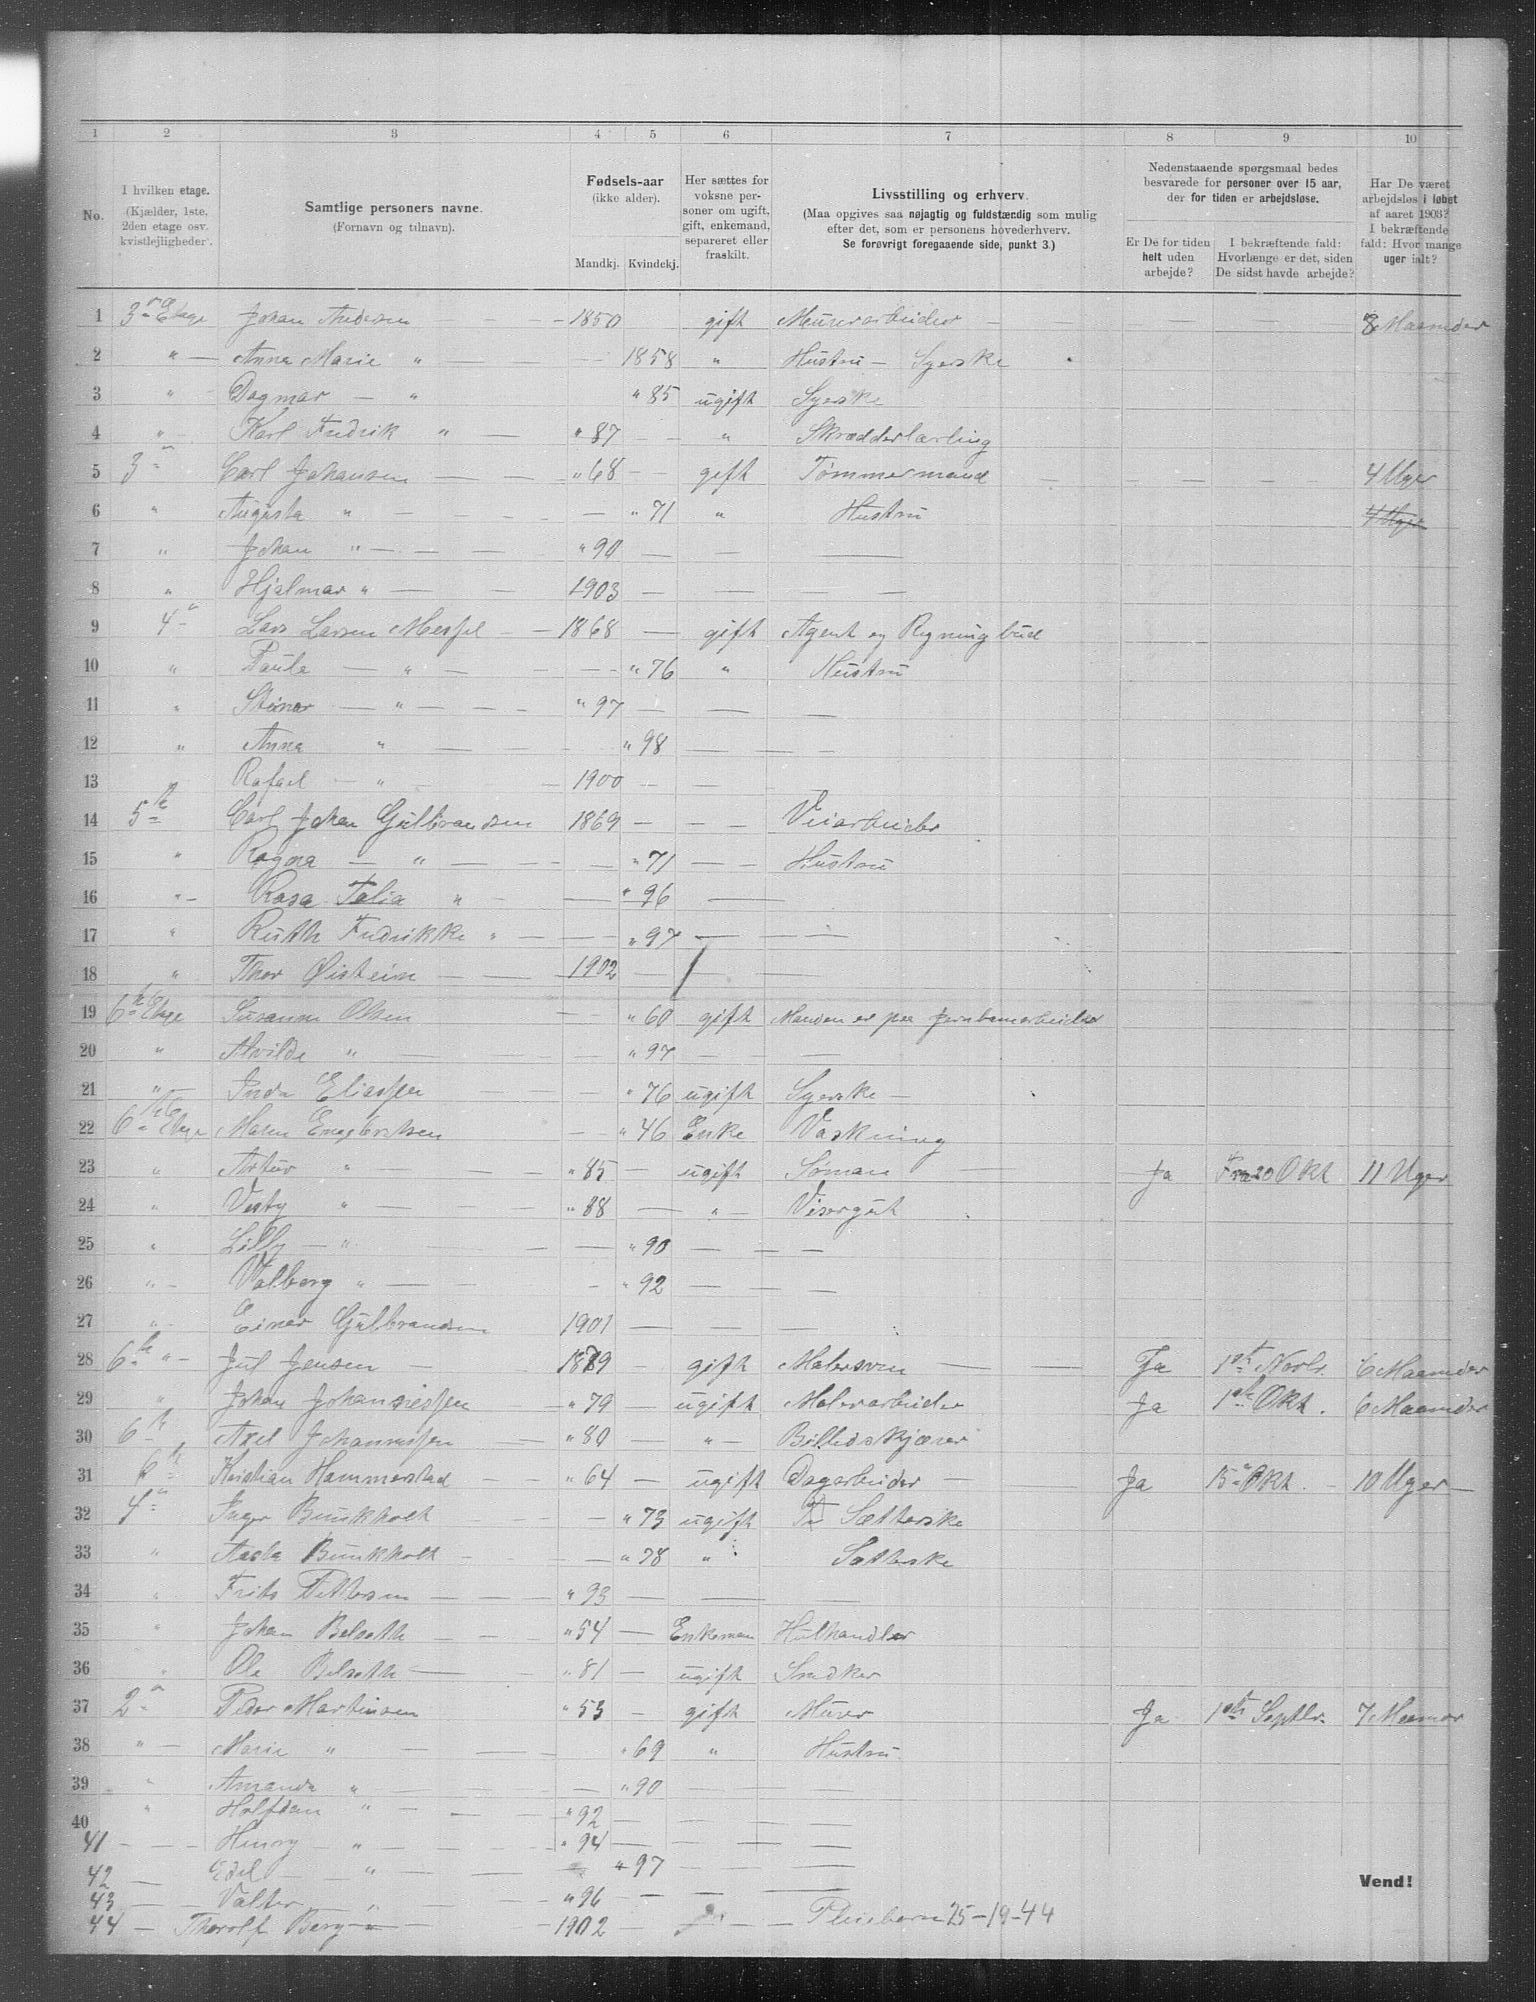 1 2 3 4 5 6 7 8 9 10
No.
I hvilken etage.
(Kjælder, 1ste,
2den etage osv.
kvistlejligheder).
Samtlige personers navne.
(Fornavn og tilnavn).
Fødsels-aar
(ikke alder).
Mandkj. Kvindekj.
Her sættes for
voksne per-
soner om ugift,
gift, enkemand,
separeret eller
fraskilt.
Livsstilling og erhverv.
(Maa opgives saa nøjagtig og fuldstændig som mulig
efter det, som er personens hovederhverv.
Se forøvrigt foregaaende side, punkt 3.)
Nedenstaaende spørgsmaal bedes
besvarede for personer over 15 aar,
der for tiden er arbejdsløse.
Er De for tiden
helt uden
arbejde?
I bekræftende fald:
Hvorlænge er det, siden
De sidst havde arbejde?
Har De været
arbejdsløs i løbet
af aaret 1903?
I bekræftende
fald: Hvor mange
uger ialt?
1 3 Etage Johan Andersen 1850 gift Meurerarbeider 8 Maaneder
2 " Anna Marie " 1858 " Hustru - Syerske
3 " Dagmar " " 85 ugift Syerske
4 " Karl Fredrik " " 87 " Skrædderlærling
5 3 Carl Johansen " 68 gift Tømmermand 4 Uger
6 " Augusta " " 71 " Hustru 4 Uger
7 " Johan " " 90
8 " Hjalmar " 1903
9 4 Lars Larsen 1868 gift Agent og Regningbud
10 " Paule " " 76 " Hustru
11 " Steinar " " 97
12 " Anna " " 98
13 Rafael " 1900
14 5 Carl Johan Gulbrandsen 1869 Veiarbeider
15 " Ragna " " 71 Hustru
16 " Rosa Talia " " 96
17 " Ruth Fredrikke " " 97
18 " Thor Øistein 1902
19 6 Etage Susanne Olsen " 60 gift Manden er paa Jernbanearbeide
20 " Alvilde " " 97
21 " Inda Eliassen " 76 ugift Syerske
22 6 Etage Maren Engebretsen " 46 Enke Vaskning
23 " Artur " " 85 ugift Søman Ja Fra 20 Okt 11 Uger
24 " " " 88 " Visergut
25 " Lilly " " 90
26 " Valberg " " 92
27 " Einar Gulbrandsen 1901
28 6 " Jul Jensen 1879 gift Malersven Ja 1 Novbr. 6 Maaneder
29 " Johan Johannessen " 79 ugift Malerarbeider Ja 1 Okt. 6 Maaneder
30 6 Axel Johannessen " 80 " Billedskjærer
31 6 Kristian Hammerstad " 64 ugift Dagarbeider Ja 15 Okt. 10 Uger
32 4 Inger Bunkholt " 73 ugift Sætterske
33 " Aasta Bunkholt " 78 " Sætterske
34 " Frits Pettersen " 93
35 " Johan Belseth " 54 Enkeman
36 " Ole Belseth " 81 ugift Snedker
37 2 Peder Martinsen " 53 gift Murer Ja 1 Septbr. 7 Maaneder
38 " Marie " " 69 " Hustru
39 " Amanda " " 90
40 " Halfdan " " 92
41 Henry " " 94
42 Edel " " 97
43 Valter " " 96
44 Thorolf Berg 1902 Pleiebarn 25-19-44
Vend!